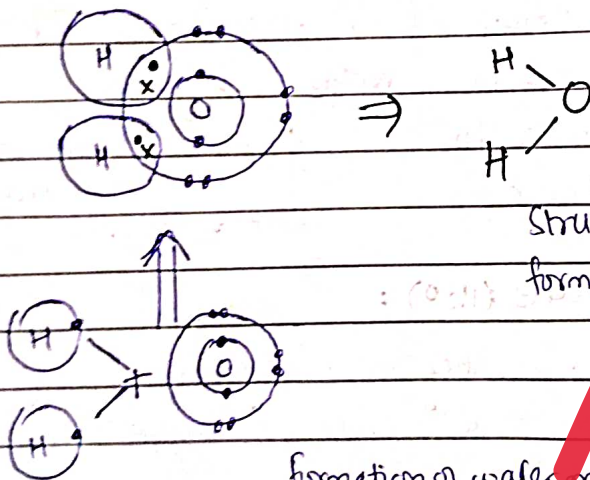 H
x
O
⇒
H
O
H
x
H
Stru
form
H
+
O
H
formation of water m